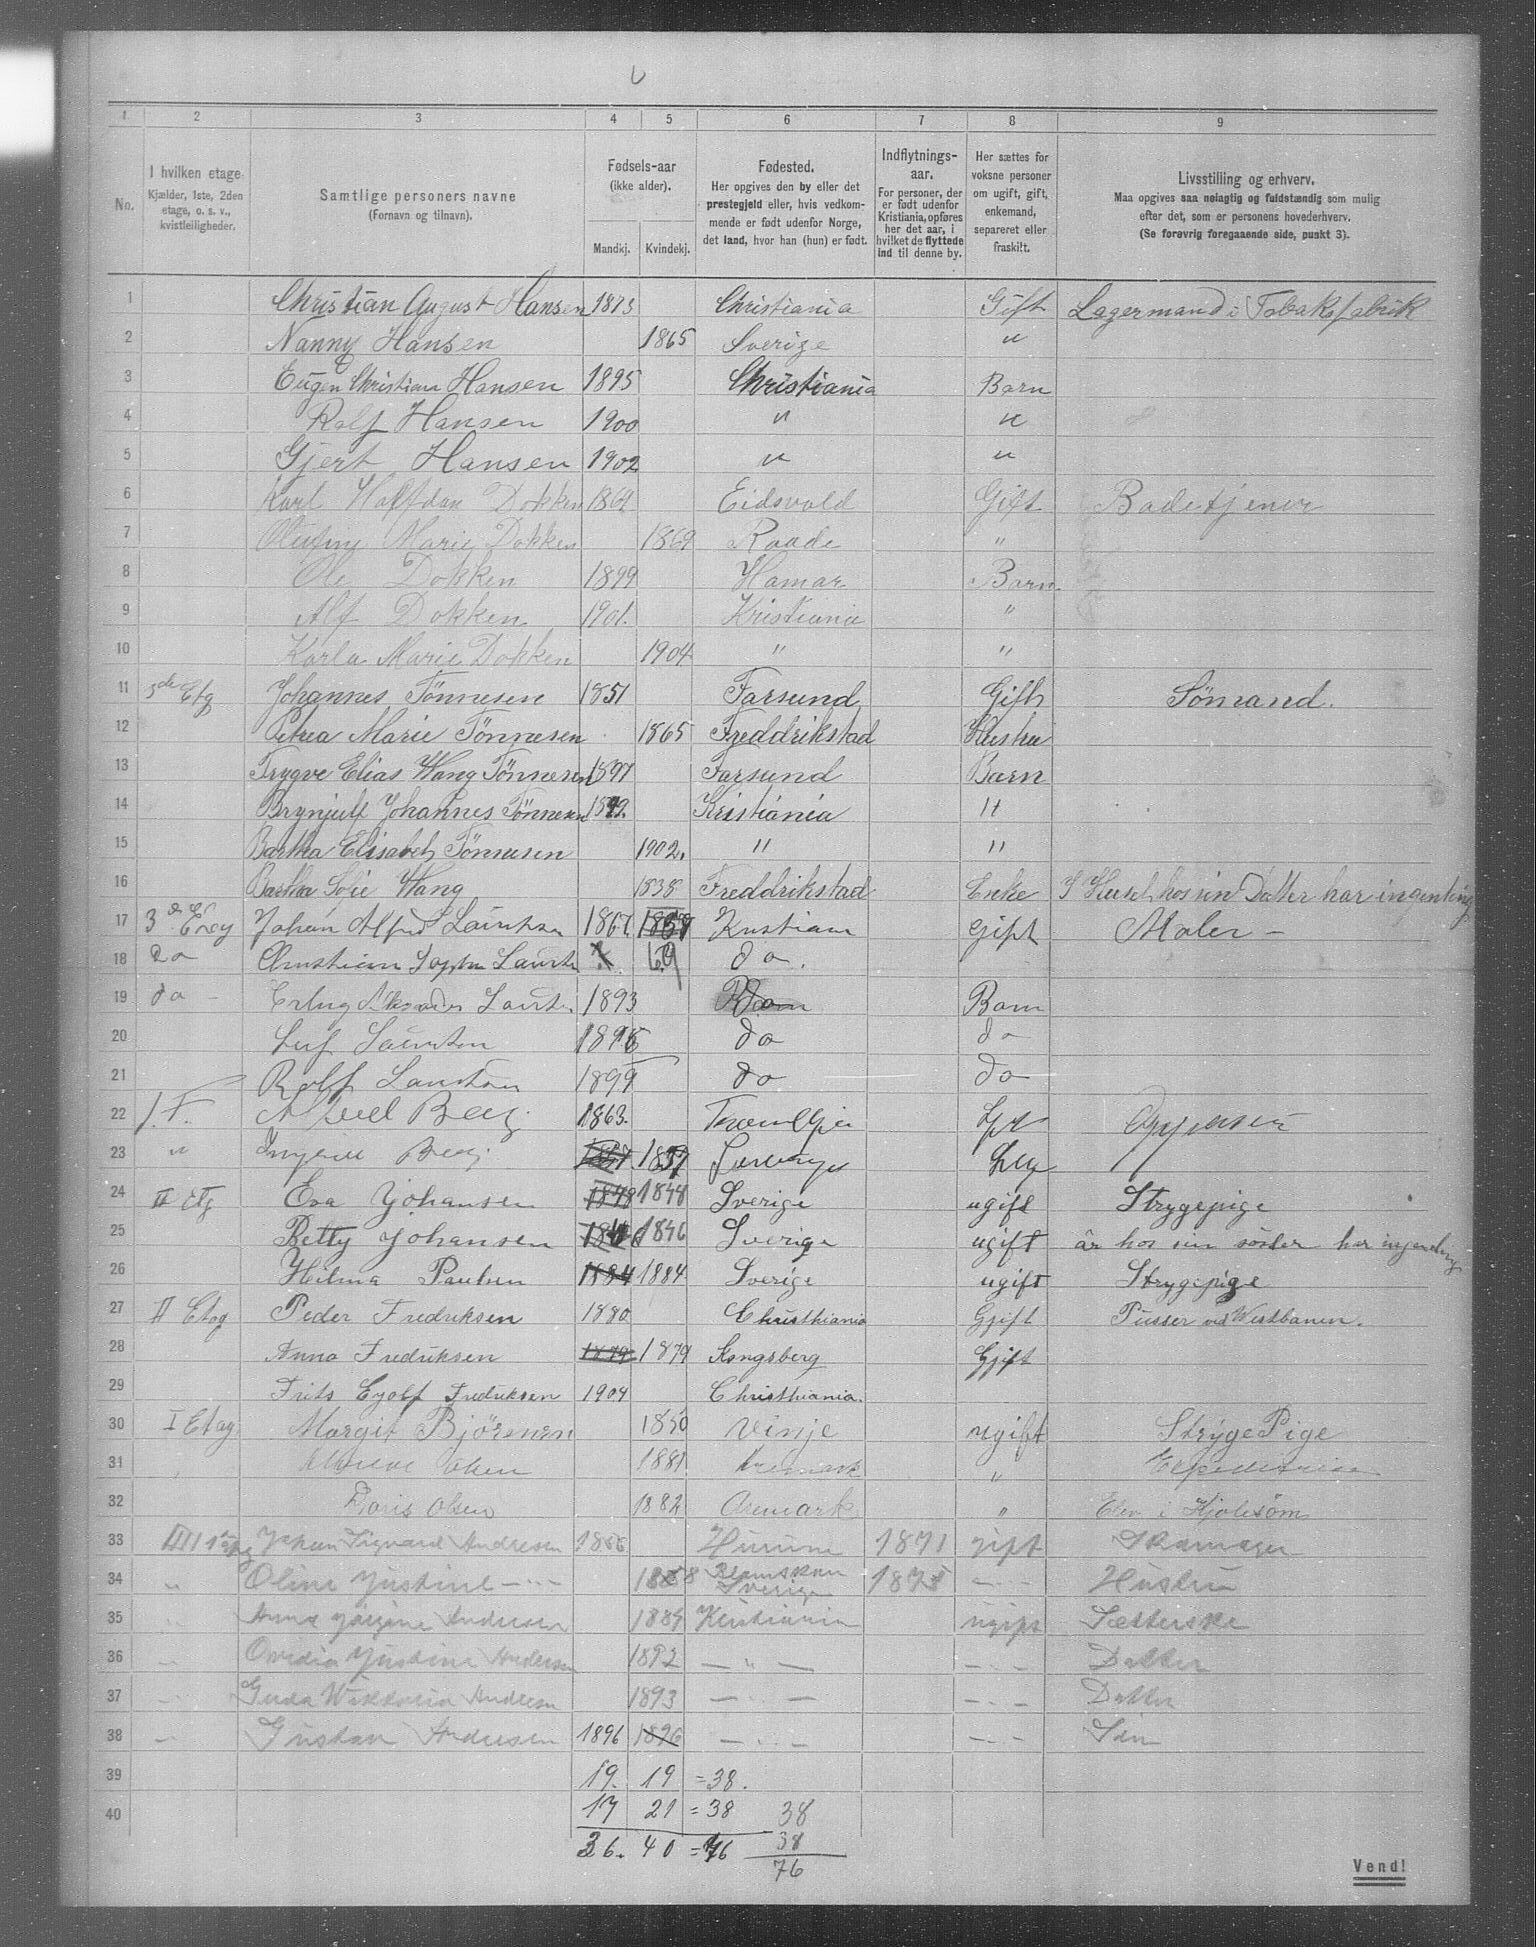 1 2 3 4 5 6 7 8 9
No.
I hvilken etage
Kjælder, 1ste, 2den
etage, o. s. v.,
kvistleiligheder.
Samtlige personers navne
(Fornavn og tilnavn).
Fødsels-aar
(ikke alder).
Mandkj. Kvindekj.
Fødested.
Her opgives den by eller det
prestegjeld eller, hvis vedkom-
mende er født udenfor Norge,
det land, hvor han (hun) er født.
Indflytnings-
aar.
For personer, der
er født udenfor
Kristiania, opføres
her det aar, i
hvilket de flyttede
ind til denne by.
Her sættes for
voksne personer
om ugift, gift,
enkemand,
separeret eller
fraskilt.
Livsstilling og erhverv.
Maa opgives saa nøiagtig og fuldstændig som mulig
efter det, som er personens hovederhverv.
(Se forøvrig foregaaende side, punkt 3).
1 Christian August Hansen 1873 Christiania Gift Lagermand i Tobaksfabrik
2 Nanny Hansen 1865 Sverige "
3 Eugen Christian Hansen 1895 Christiania Barn
4 Rolf Hansen 1900 " "
5 Gjert Hansen 1902 " "
6 Karl Halfdan Dokken 1869 Eidsvold Gift Badetjener
7 Marie Dokken 1869 Raade "
8 Ole Dokken 1899 Hamar Barn
9 Alf Dokken 1901. Kristiania "
10 Karla Marie Dokken 1904 " "
11 Etg Johannes Tönnesen 1851 Farsund Gift Sömand.
12 Petrea Marie Tönnesen 1865 Freddrikstad Hustru
13 Trygve Elias Wang Tönnesen 1897 Farsund Barn
14 Brynjulf Johannes Tönnesen 1899. Kristiania "
15 Bartha Elisabeth Tönnesen 1902. " "
16 Bartha Sofie Wang 1838 Freddrikstad Enke I Huset hos sin Datter har ingenting
17 3de Johan Alfred 1867. Kristiania Gift Maler -
18 Do 69 do.
19 do - 1893 Barn
20 1895 do do
21 Rolf 1899 do do
22 1. Berg 1863.
23 " Berg 1857
24 II Etg Eva Johansen 1848 1848 Sverige ugift Strygepige
25 Betty Johansen 1846 Sverige ugift är hos sin söster har ingenting
26 Hilma Paulsen 1884 1884 Sverige ugift Strygepige
27 II Etag Peder Fredriksen 1880 Christhiania Gjift Pusser ved Westbanen.
28 Anna Fredriksen 1879 1879 Kongsberg Gjift
29 Frits Eyolf Fredriksen 1904 Christhiania.
30 I Etag Margit Björensen 1850 Vinje ugift Stryge Pige
31 Olsen 1881 Aremark "
32 Doris Olsen 1882 Aremark " Elev i Kjolesöm
33 Johan Sigvard Andresen 1856 Hurum 1871 gift Skomager
34 " Oline Justine - " - 1858 Sverige 1875 - " - Hustru
35 " Anna Andresen 1885 Kristiania ugift
36 " Ovidia Justine Andresen 1892 - " - - " - Datter
37 - " - Gerda Wiktoria Andresen 1893 - " - - " - Datter
38 - " - Gustav Andresen 1896 1896 - " - - " - Sön
39 19. 19 = 38.
40 17 21 = 38 38
36. 40 = 76 38
76
Vend!